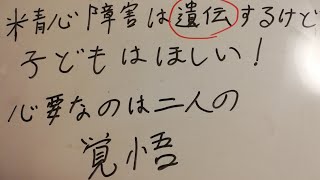 精心障害は遺伝するけど
子どもはほしい!
心要なのは二人の
覚悟